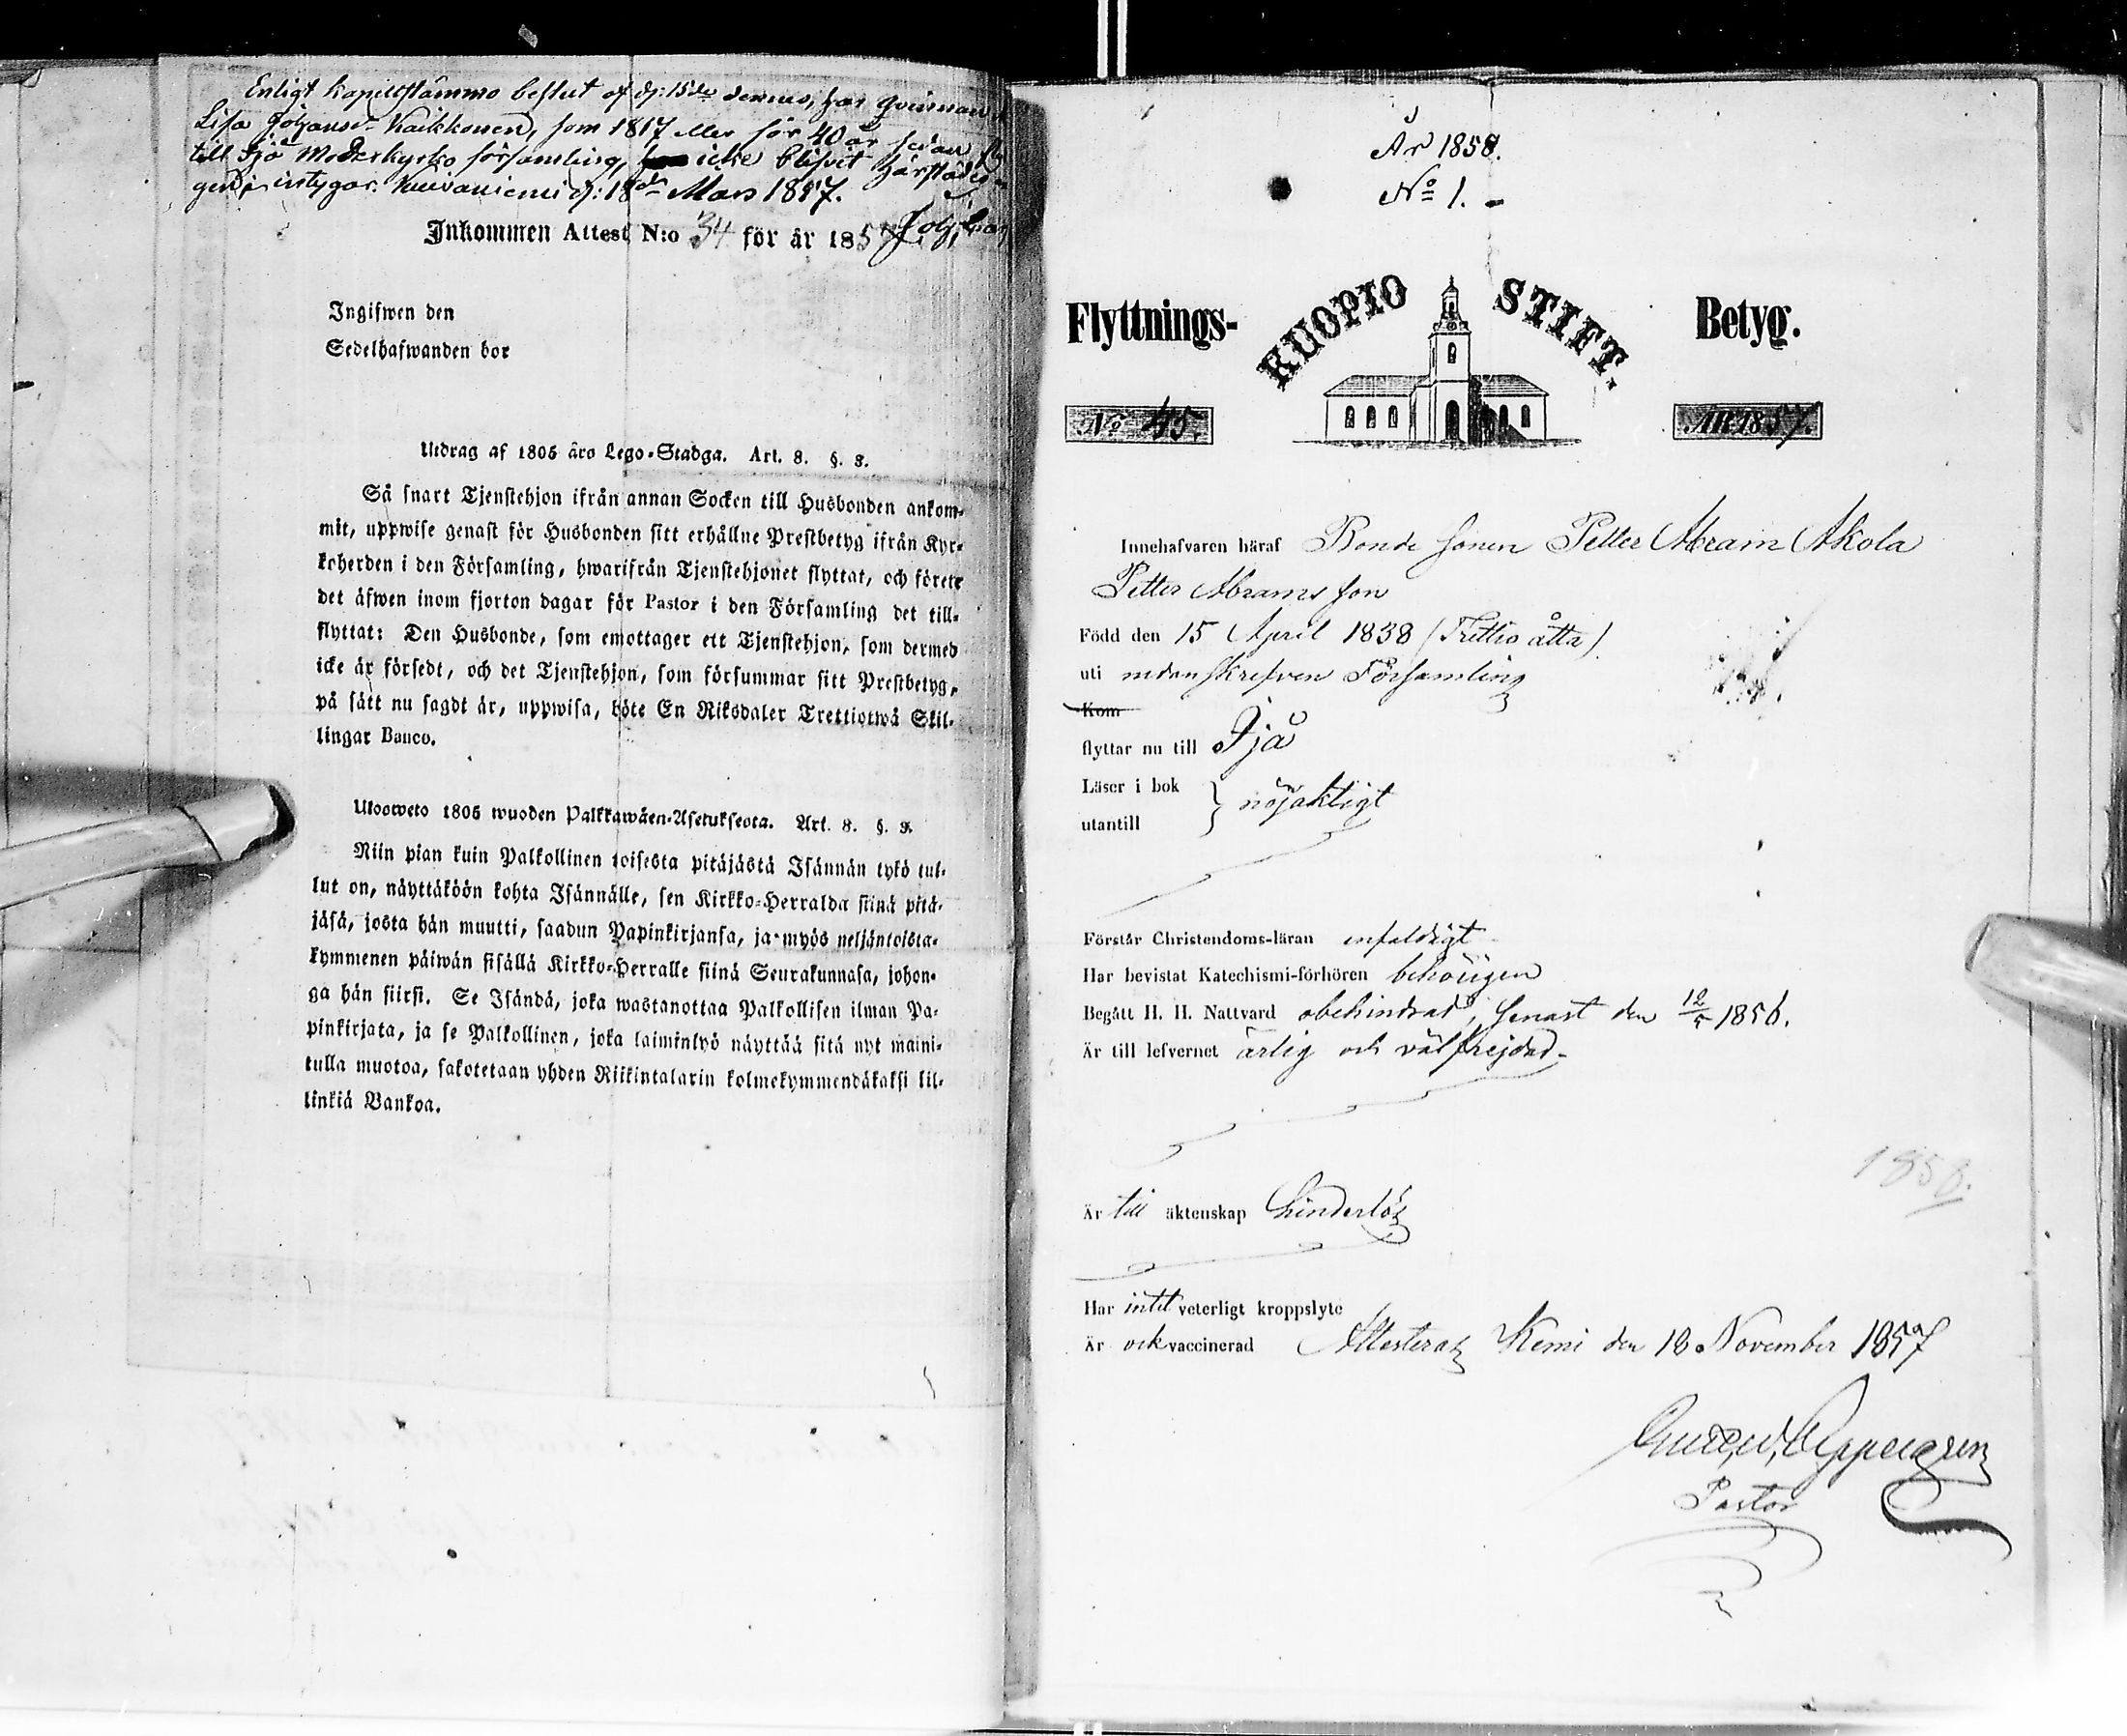 Enligt kapellstämmo beslut af d: 15de dennes, har qvinnan
Lisa Johansd. Kaikkonen, som 1817 eller för 40 år sedan
till Ijå Moderkyrko församling, icke blifvit härstädes
intygar. Kuivaniemi d: 18de Mars 1857.
Inkommen Attest N:o 34 för år 1857
Joh:
Ingifwen den
Sedelhafwanden bor
Utdrag af 1805 års Lego-Stadga. Art. 8. §. 3.
Så snart Tjenstehjon ifrån annan Socken till Husbonden ankom-
mit, uppwise genast för Husbonden sitt erhållne Prestbetyg ifrån Kyr-
koherden i den Församling, hwarifrån Tjenstehjonet flyttat, och förete
det äfwen inom fjorton dagar för Pastor i den Församling det till-
flyttat: Den Husbonde, som emottager ett Tjenstehjon, som dermed
icke är försedt, och det Tjenstehjon, som försummar sitt Prestbetyg,
på sätt nu sagdt är, uppwisa, böte En Riksdaler Trettiotwå Skil-
lingar Banco.
Ulosweto 1805 wuoden Palkkawäen-Asetuksesta. Art. 8. §. 3.
Niin pian kuin Palkollinen toisesta pitäjästä Isännän tykö tul-
lut on, näyttäköön kohta Isännälle, sen Kirkko-Herralda siinä pitä-
jäsä, josta hän muutti, saadun Papinkirjansa, ja myös neljäntoista-
kymmenen päiwän sisällä Kirkko-Herralle siinä Seurakunnasa, johon-
ga hän siirsi. Se Isändä, joka wastanottaa Palkollisen ilman Pa-
pinkirjata, ja se Palkollinen, joka laiminlyö näyttää sitä nyt maini-
tulla muotoa, sakotetaan yhden Riikintalarin kolmekymmendäkaksi kil-
linkiä Bankoa.
År 1858.
No 1.
Flyttnings- KUOPIO STIFT. Betyg.
No 45. ÅR 1857.
Innehafvaren häraf Bonde sonen Petter Abram Akola
Petter Abrams son
Född den 15 April 1838 (Trettio åtta).
uti nedanskrefven Församling
Kom
flyttar nu till Ijå
Läser i bok
utantill } nöjaktigt
Förstår Christendoms-läran enfaldigt
Har bevistat Katechismi-förhören behörigen
Begått H. H. Nattvard obehindrad, senast den 12/5 1856.
Är till lefvernet ärlig och välfrejdad.
1858.
Är till äktenskap hinderlös
Har intet veterligt kroppslyte
Är ock vaccinerad Attesterar Kemi den 18 November 1857
Pastor